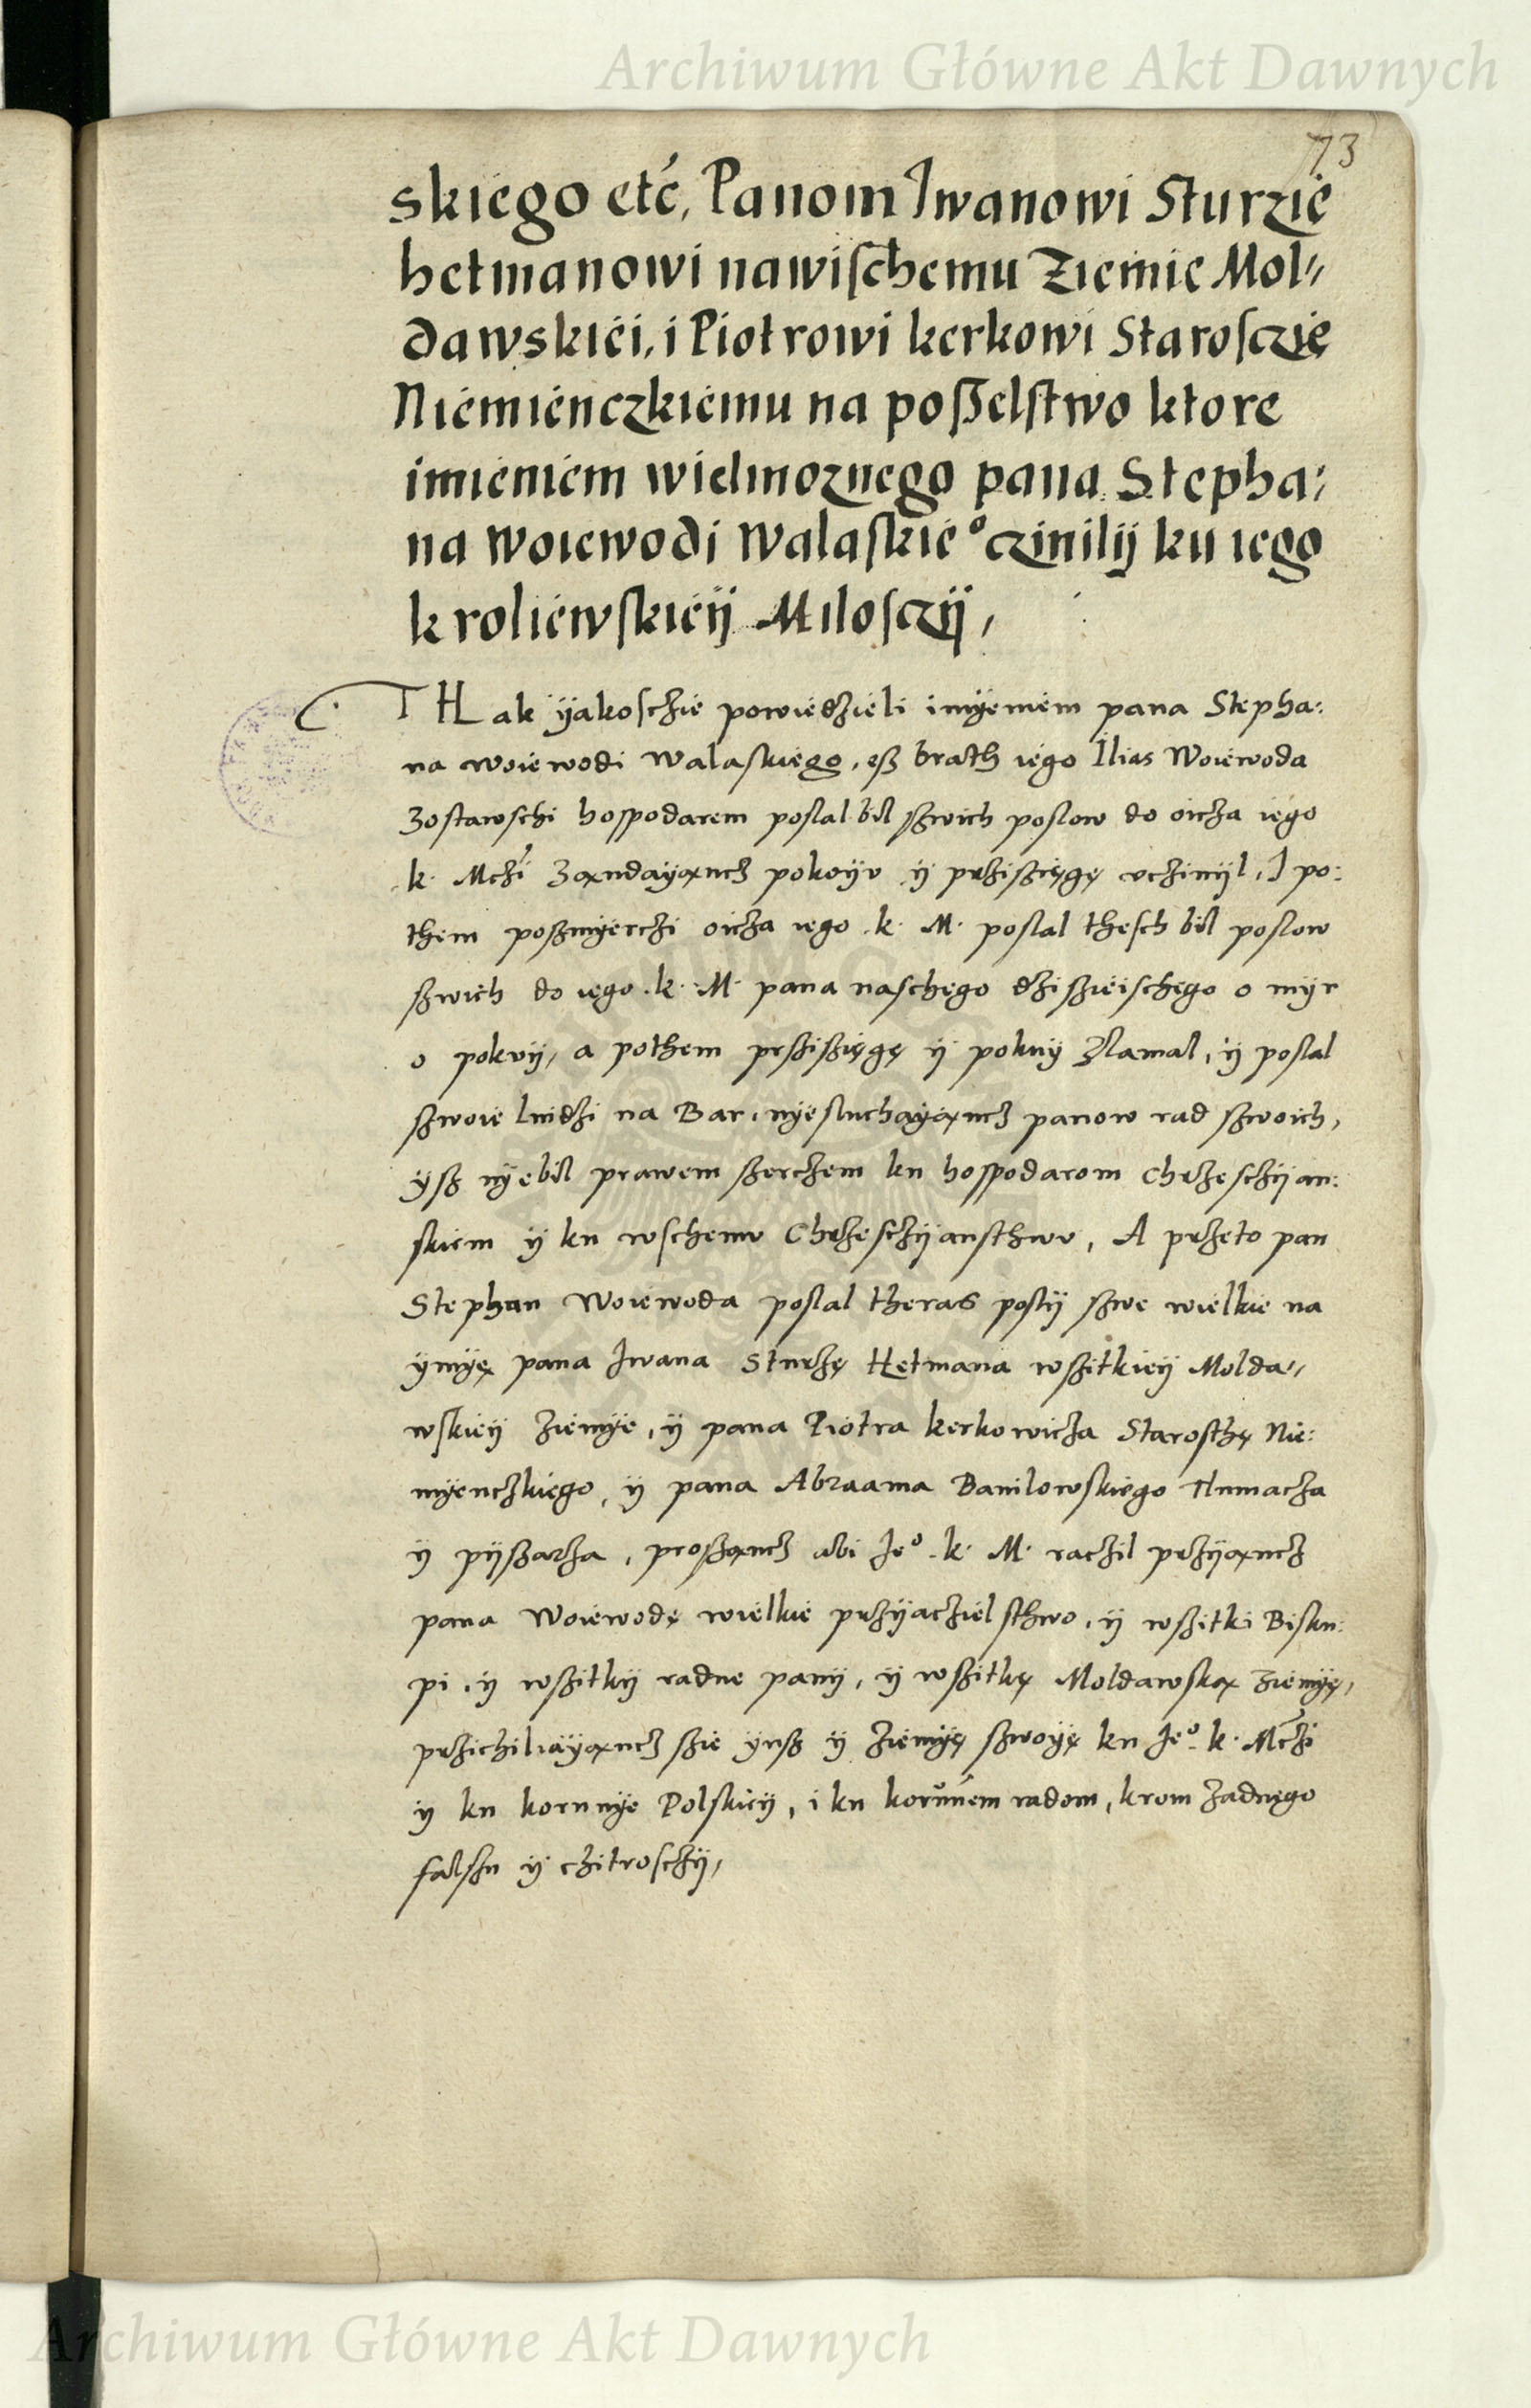 Archiwum Główne Akt Dawnych
73
skiego etć, Panom Iwanowi Sturzie
hetmanowi nawischemu Ziemie Mol⸗
dawskiei, i Piotrowi kerkowi Starosczię
Niemienczkiemu na poßelstwo ktore
imieniem wielmoznego pana Stepha:
na woiewodi walaskie° czinilÿ ku iego
kroliewskieÿ Milosczÿ,
THak ÿakosczie powiedzieli imÿeniem pana Stepha:
na woiewodi walaskiego, esz brath iego Ilias Woiewoda
Zostawschi hospodarem poslal bil szwich poslow do oicza iego
k. Mczi Zandaÿancz pokoÿu ÿ prziszięgę vczinÿl, I po:
them poszmÿerczi oicza iego k. M. poslal thesch bil poslow
szwich do iego k. M. pana naschego dziszieischego o mÿr
o pokoÿ, a pothem prziszięgę ÿ pokoÿ Zlamal, ÿ poslal
szwoie luidzi na Bar, nÿesluchaÿancz panow rad szwoich,
ÿsz nÿebil prawem szerczem ku hospodarom Chrzesczÿan:
skiem ÿ ku wschemu Chrzesczÿansthwu, A przeto pan
Stephan Woiewoda poslal theras poslÿ szwe wielkie na
ÿmÿę pana Iwana Sturzę Hetmana wszitkieÿ Molda⸗
wskieÿ ziemÿe, ÿ pana Piotra kerkowicza Starosthę Nie:
mÿenczkiego, ÿ pana Abraama Banilowskiego Tlumacza
ÿ pÿszarza, proszancz abi Ie° k. M. raczil przÿancz
pana Woiewodę wielkie przÿaczielsthwo, ÿ wszitki Bisku:
pi, ÿ wszitkÿ radne panÿ, ÿ wszitkę Moldawską ziemÿę,
przichiliaÿancz szie ÿnsz ÿ ziemÿę szwoÿę ku Ie° k. Mczi
ÿ ku korunÿe Polskieÿ, i ku korunnem radom, krom żadnego
falszu ÿ chitrosczÿ,
Archiwum Główne Akt Dawnych